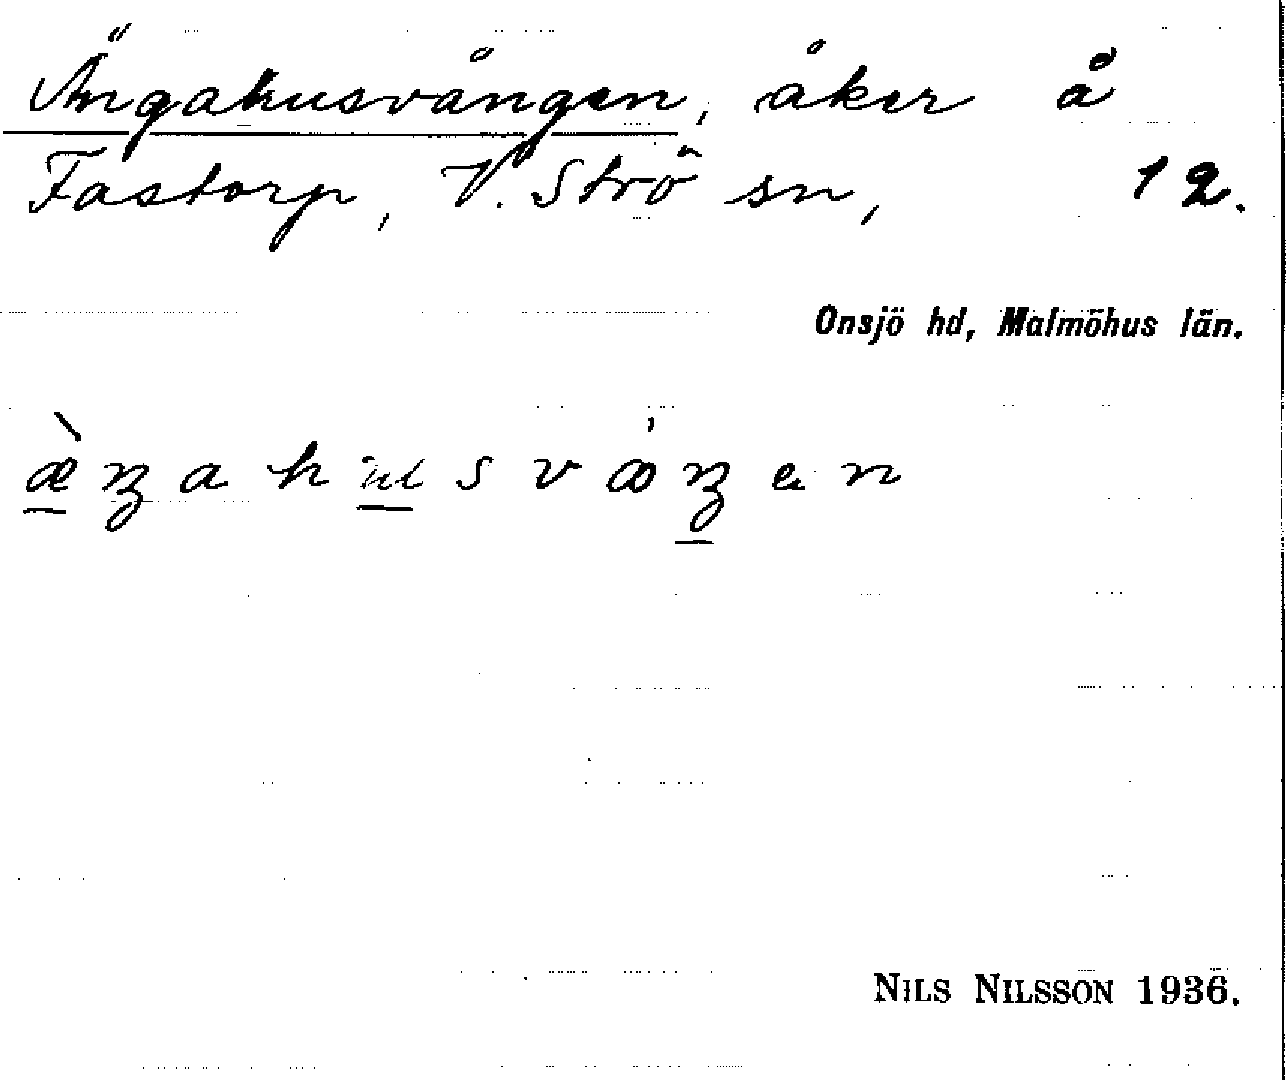 Ängahusvången, åker å
Fastorp, V. Strö sn, 12.
Onsjö hd, Malmöhus län.
NILS NILSSON 1936.